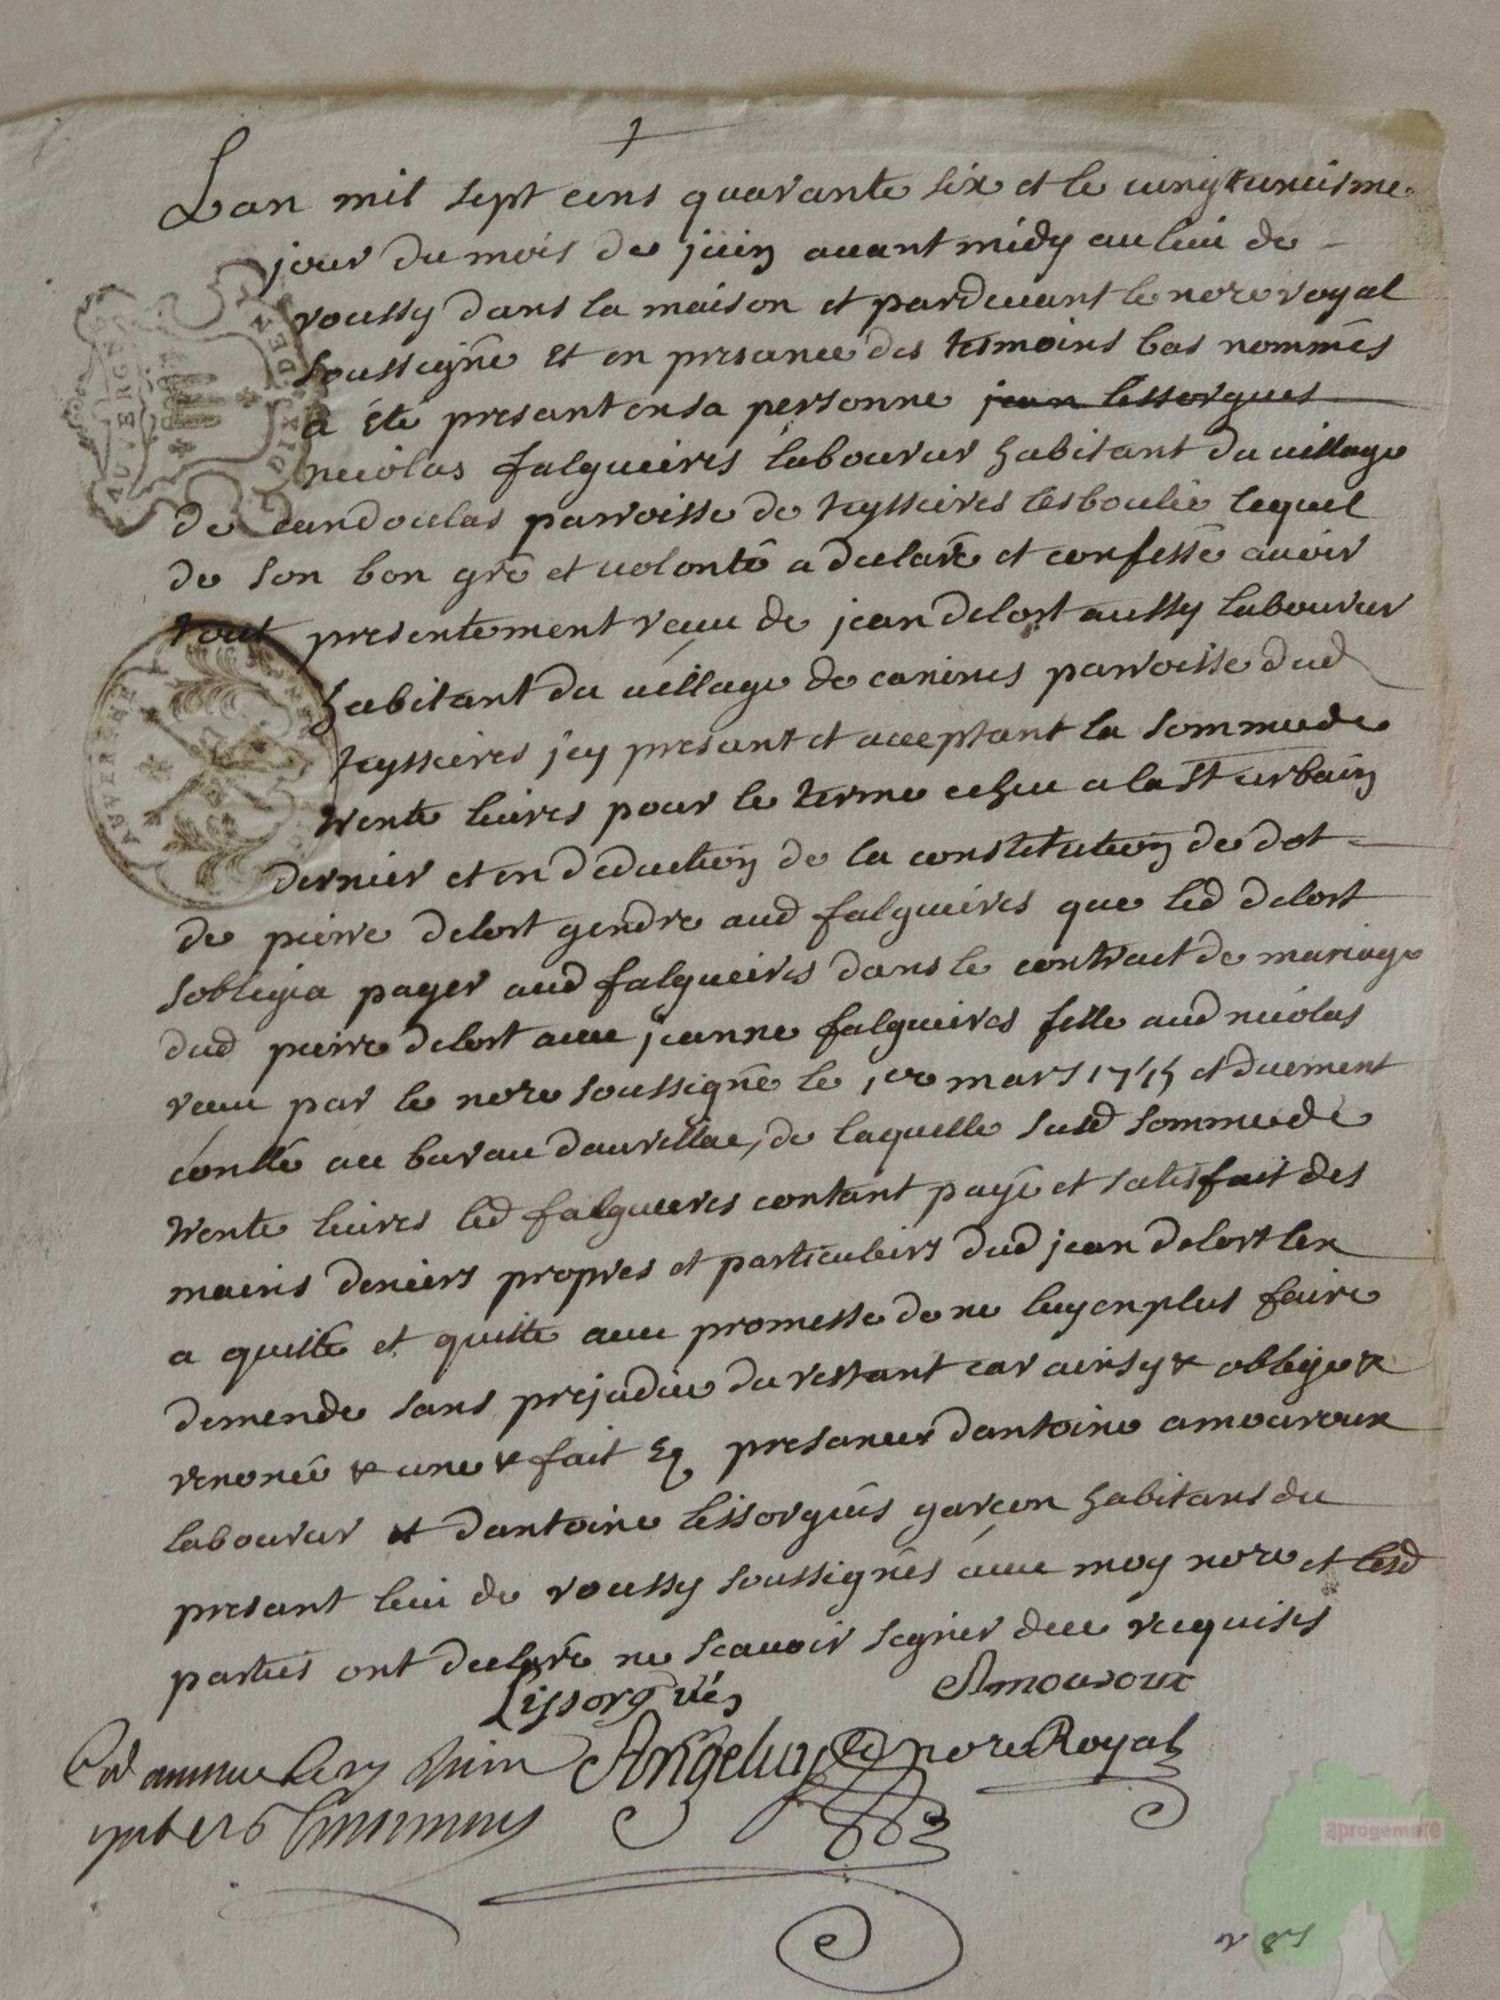 Lan mil sept cens quarante six et le vingt unieisme
jour du mois de juin avant midy au lieu de
roussy dans la maison et pardevant le nore royal
soussigné et en presance des temoins bas nommés
a été presant en sa personne jean lissorgues
nicolas falguieires laboureur habitant du village
de candoulas parroisse de teyssieires lesboulié lequel
de son bon gré et volonté a declaré et confessé avoir
tout presentement receu de jean delort aussy laboureur
habitant du village de canines parroisse dud
teyssieires jcy presant et acceptant la somme de
trente livres pour le terme echeu a la st urbain
dernier et en deduction de la constitution de dot
de pierre delort gendre aud falguieires que led delort
sobligea payer aud falguieires dans le contract de mariage
dud pierre delort avec jeanne falguieires fille aud nicolas
receu par le nore soussigné le 1er mars 1745 et duement
conllé au bureau daurillac, de laquelle susd somme de
trente livres led falguieires contant payé et satisfait des
mains deniers propres et particuliers dud jean delort len
a quitté et quitte avec promesse de ne luy en plus faire
demende sans prejudice du restant car ainsy & oblige &
renoncé & une & fait Eq presances dantoine amouroux
laboureur et dantoine lissorgués garçon habitans du
presant lieu de roussy soussignés avec moy nore et lesd
parties ont declaré ne scavoir signer de ce requises
Lissorgués Amouroux
Angelvy nore Royal
AUVERGNE